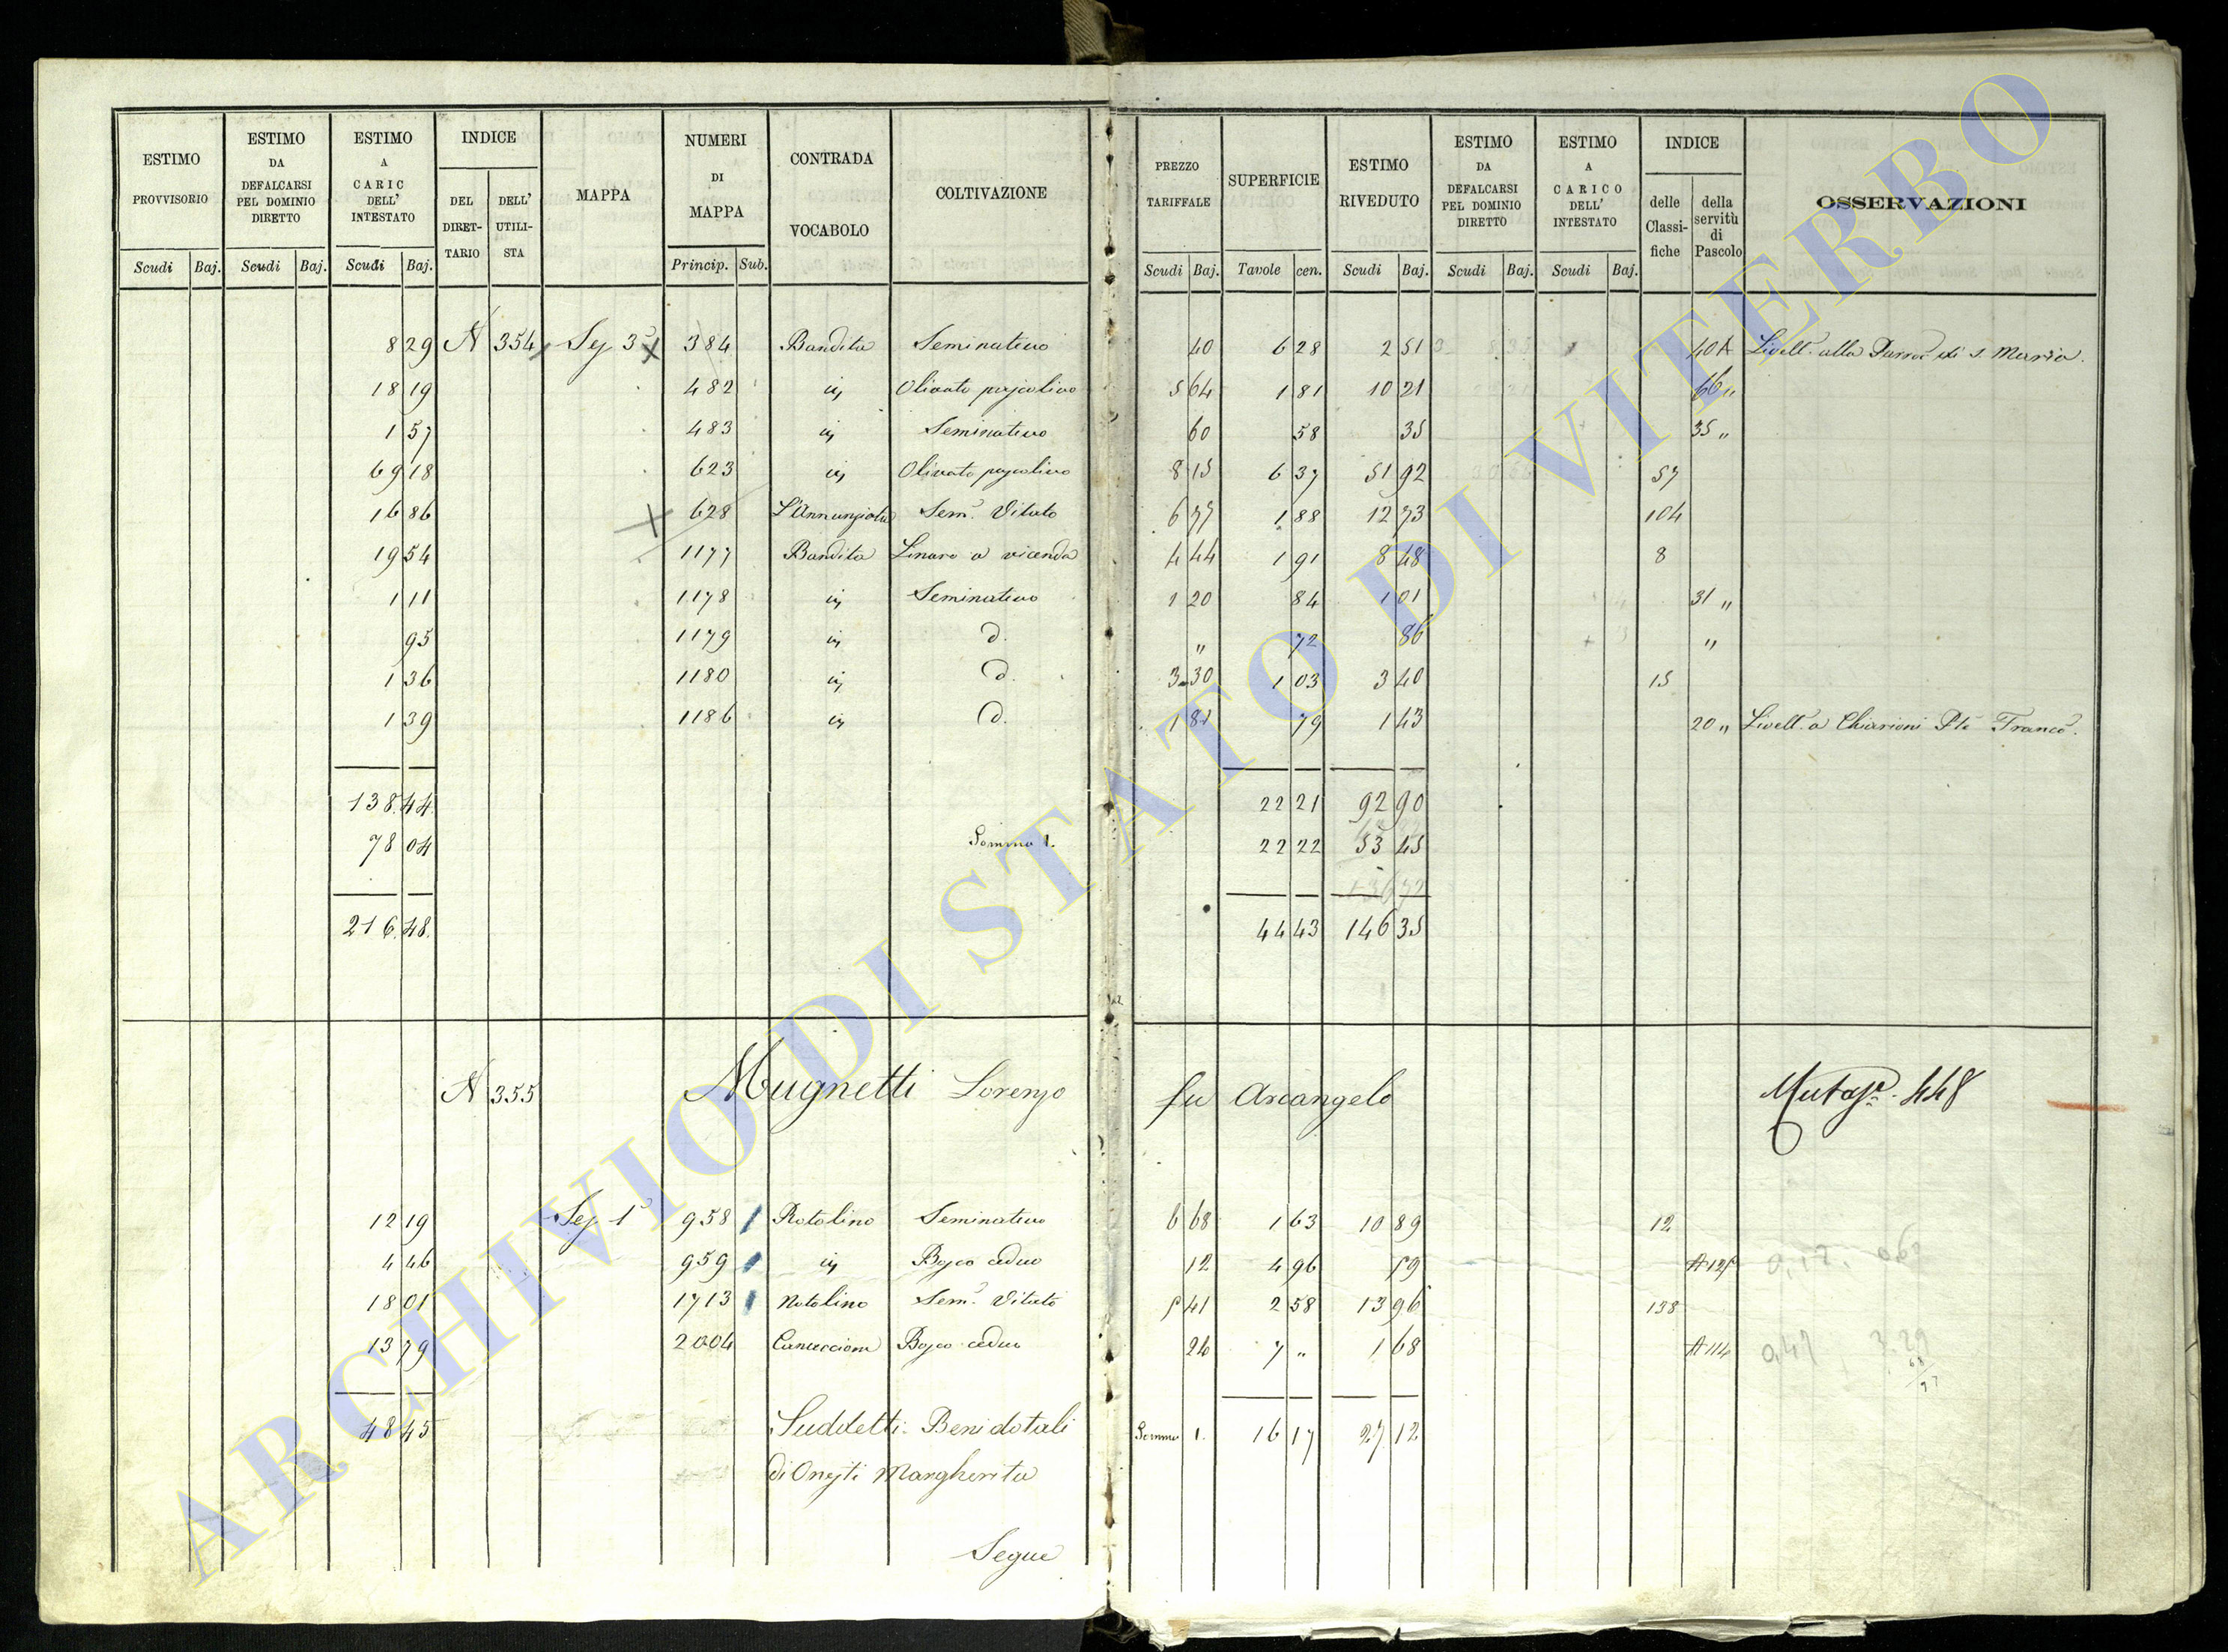 ESTIMO PROVVISORIO
ESTIMO DA DEFALCARSI PEL DOMINIO DIRETTO
ESTIMO A CARIC DELL' INTESTATO
INDICE
DEL DIRET- TARIO
DELL' UTILI- STA
MAPPA
NUMERI DI MAPPA
CONTRADA VOCABOLO
COLTIVAZIONE
PREZZO TARIFFALE
SUPERFICIE
ESTIMO RIVEDUTO
ESTIMO DA DEFALCARSI PEL DOMINIO DIRETTO
ESTIMO A CARICO DELL' INTESTATO
INDICE
delle Classi- fiche
della servitù di Pascolo
OSSERVAZIONI
Scudi Baj. Scudi Baj. Scudi Baj. Princip. Sub. Scudi Baj. Tavole cen. Scudi Baj. Scudi Baj. Scudi Baj.
8 29 N 354 Sez 3ª 384 Bandita Seminativo 40 6 28 2 51 40 A Livell. alla Parroc di S. Maria.
18 19 482 iv Olivato pascolivo 5 64 1 81 10 21 66 "
1 57 483 iv Seminativo 60 58 35 35 "
69 18 623 iv Olivato pascolivo 8 15 6 37 51 92 57
16 86 628 L'Annunziata Sem. Vitato 6 77 1 88 12 73 104
19 54 1177 Bandita Linaro a vicenda 4 44 1 91 8 48 8
1 11 1178 iv Seminativo 1 20 84 1 01 31 "
95 1179 iv d. " 72 86 "
1 36 1180 iv d. 3 30 1 03 3 40 15
1 39 1186 iv d. 1 81 79 1 43 20 " Livell. a Chiarioni Pte Franco.
138.44. 22 21 92 90
78 04 Somma 1. 22 22 53 45
136 72
216.48. 44 43 146 35
N 355 Mugnetti Lorenzo fu Arcangelo Mutaz. 448
12 19 Sez 1ª 958 Rotolino Seminativo 6 68 1 63 10 89 12
4 46 959 iv Bosco ceduo 12 4 96 59 A 125
18 01 1713 Rotolino Sem. Vitato 5 41 2 58 13 96 138
13 79 2004 Bosco ceduo 24 7 " 1 68 A 114
0,47 3.29
48 45 Suddetti Beni dotali Somma 1. 16 17 27 12
di Onesti Margherita
Segue
ARCHIVIO DI STATO DI VITERBO